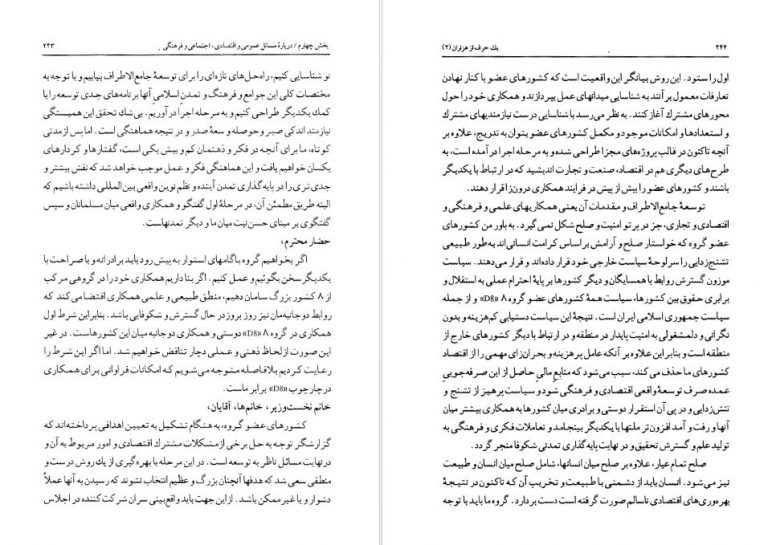 ۲۲۲ یک حرف از هزاران (۲)
اول را ستود. این روش بیانگر این واقعیت است که کشورهای عضو با کنار نهادن
تعارفات معمول بر آنند به شناسایی میدانهای عمل بپردازند و همکاری خود را حول
محورهای مشترک آغاز کنند. به نظر می‌رسد با شناسایی درست نیازمندیهای مشترک
و استعدادها و امکانات موجود و مکمل کشورهای عضو بتوان به تدریج، علاوه بر
آنچه تاکنون در قالب پروژه‌های مجزا طراحی شده و به مرحله اجرا در آمده است، به
طرح‌های دیگری هم در اقتصاد، صنعت و تجارت اندیشید که در ارتباط با یکدیگر
باشند و کشورهای عضو را بیش از پیش در فرایند همکاری درون‌زا قرار دهند.
توسعهٔ جامع‌الاطراف و مقدمات آن یعنی همکاریهای علمی و فرهنگی و
اقتصادی و تجاری، جز در پرتو امنیت و صلح شکل نمی‌گیرد. به باور من کشورهای
عضو گروه که خواستار صلح و آرامش براساس کرامت انسانی‌اند به‌طور طبیعی
تشنج‌زدایی را سرلوحهٔ سیاست خارجی خود قرار داده‌اند و قرار می‌دهند. سیاست
موزون گسترش روابط با همسایگان و دیگر کشورها بر پایهٔ احترام عملی به استقلال و
برابری حقوق بین کشورها، سیاست همهٔ کشورهای عضو گروه ۸ «D8» و از جمله
سیاست جمهوری اسلامی ایران است. نتیجهٔ این سیاست دستیابی کم‌هزینه و بدون
نگرانی و دلمشغولی به امنیت پایدار در منطقه و در ارتباط با دیگر کشورهای خارج از
منطقه است و بنابراین علاوه بر آنکه عامل پرهزینه و بحران‌زای مهمی را از اقتصاد
کشورهای ما حذف می‌کند، سبب می‌شود که منابع مالیِ حاصل از این صرفه‌جویی
عمده صرف توسعهٔ واقعی اقتصادی و فرهنگی شود و سیاست پرهیز از تشنج و
تنش‌زدایی و در پی آن استقرار دوستی و برادری میان کشورها به همکاری بیشتر میان
آنها و رفت و آمد افزون‌تر ملتها با یکدیگر بینجامد و تعاملات فکری و فرهنگی به
تولید علم و گسترش تحقیق و در نهایت پایه‌گذاری تمدنی شکوفا منجر گردد.
صلح تمام عیار، علاوه بر صلح میان انسانها، شامل صلح میان انسان و طبیعت
نیز می‌شود. انسان باید از دشمنی با طبیعت و تخریب آن که تاکنون در نتیجهٔ
بهره‌وری‌های اقتصادی ناسالم صورت گرفته است دست بردارد. گروه ما باید با توجه
بخش چهارم / دربارهٔ مسائل عمومی و اقتصادی، اجتماعی و فرهنگی ۲۲۳
نو شناسایی کنیم، راه‌حل‌های تازه‌ای را برای توسعهٔ جامع‌الاطراف بیابیم و با توجه به
مختصات کلی این جوامع و فرهنگ و تمدن اسلامی آنها برنامه‌های جدی توسعه را با
کمک یکدیگر طراحی کنیم و به مرحله اجرا در آوریم. بی‌شک تحقق این همبستگی
نیازمند اندکی صبر و حوصله و سعهٔ صدر و در نتیجه هماهنگی است. اما پس از مدتی
کوتاه، ما برای آنچه در فکر و ذهنمان کم و بیش یکی است، گفتارها و کردارهای
یکسان خواهیم یافت و این هماهنگی فکر و عمل موجب خواهد شد که نقش بیشتر و
جدی‌تری را در پایه‌گذاری تمدن آینده و نظم نوین واقعی بین‌المللی داشته باشیم که
البته طریق مطمئن آن، در مرحلهٔ اول گفتگو و همکاری واقعی میان مسلمانان و سپس
گفتگوی بر مبنای حسن‌نیت میان ما و دیگر تمدنهاست.
حضار محترم،
اگر بخواهیم گروه با گامهای استوار به پیش رود باید برادرانه و با صراحت با
یکدیگر سخن بگوئیم و عمل کنیم. اگر بنا داریم همکاری خود را در گروهی مرکب
از ۸ کشور بزرگ سامان دهیم، منطق طبیعی و علمی همکاری اقتضا می‌کند که
روابط دوجانبه‌مان نیز روز بروز در حال گسترش و شکوفایی باشد. بنابراین شرط اول
همکاری در گروه ۸ «D8» دوستی و همکاری دوجانبه میان این کشورهاست. در غیر
این صورت از لحاظ ذهنی و عملی دچار تناقض خواهیم شد. اما اگر این شرط را
رعایت کردیم بلافاصله متوجه می‌شویم که امکانات فراوانی برای همکاری
در چارچوب «D8» برابر ماست.
خانم نخست‌وزیر، خانم‌ها، آقایان،
کشورهای عضو گروه، به هنگام تشکیل به تعیین اهدافی پرداخته‌اند که
گزارشگر توجه به حل برخی از مشکلات مشترک اقتصادی و امور مربوط به آن و
در نهایت مسائل ناظر به توسعه است. در این مرحله با بهره‌گیری از یک روش درست و
منطقی سعی شد که هدفها آنچنان بزرگ و عظیم انتخاب نشوند که رسیدن به آنها عملاً
دشوار و یا غیر ممکن باشد. از این جهت باید واقع‌بینی سران شرکت کننده در اجلاس